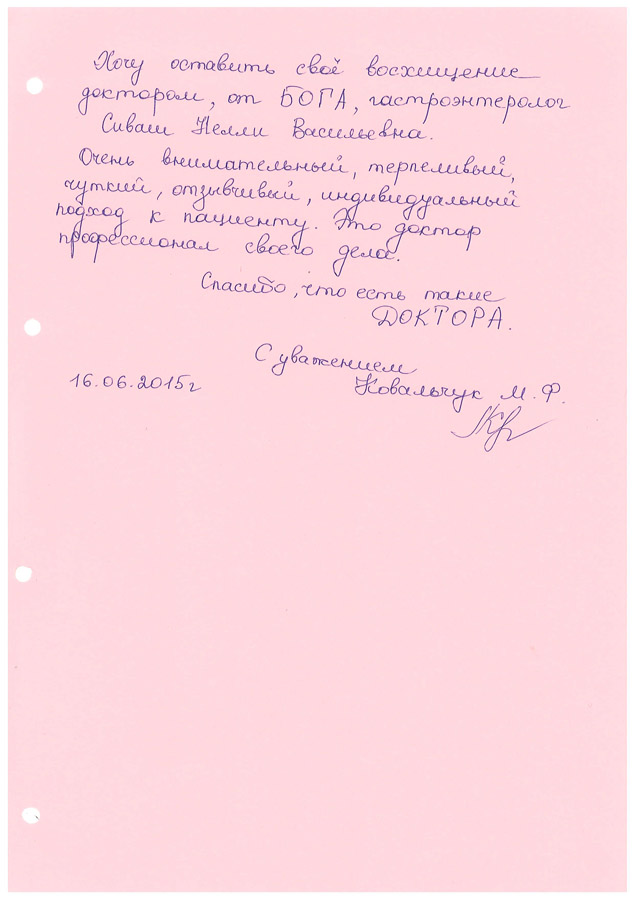 Хочу оставить своё восхищение
доктором, от БОГА, гастроэнтеролог
Сиваш Нелли Васильевна.
Очень внимательный, терпеливый,
чуткий, отзывчивый, индивидуальный
подход к пациенту. Это доктор
профессионал своего дела.
Спасибо, что есть такие
ДОКТОРА.
С уважением
16.06.2015г Ковальчук М. Ф.